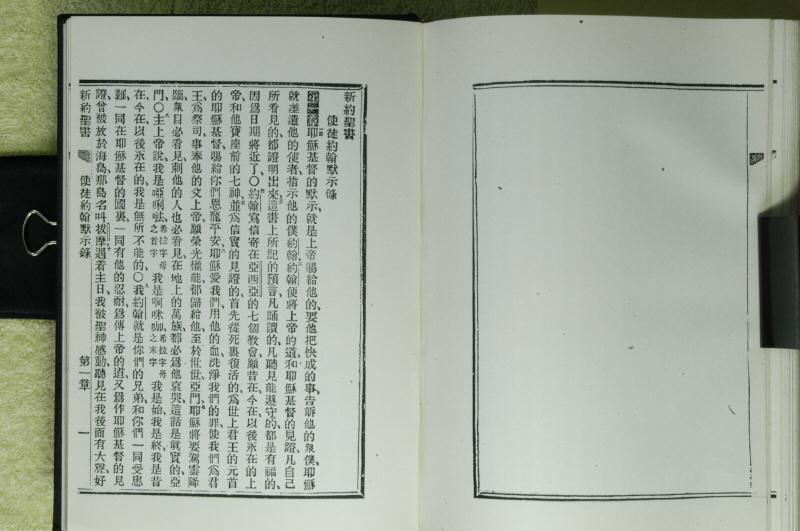 新約聖書
使徒約翰默示錄
第一章耶穌基督的默示就是上帝賜給他的要他把快成的事告訴他的衆僕耶穌
就差遣他的使者指示他的僕約翰約翰便將上帝的道和耶穌基督的見證凡自己
所看見的都證明出來這書上所記的預言凡誦讀的凡聽見能遵守的都是有福的
因爲日期將近了○約翰寫信寄在亞西亞的七個教會願昔在今在以後永在的上
帝和他寶座前的七神並爲信實的見證的首先從死裏復活的爲世上君王的元首
的耶穌基督賜給你們恩寵平安耶穌愛我們用他的血洗淨我們的罪使我們爲君
王爲祭司事奉他的父上帝願榮光權能都歸給他至於世世亞門耶穌將要駕雲降
臨衆目必看見刺他的人也必看見在地上的萬族都必爲他哀哭這話是眞實的亞
門○主上帝說我是啞唎呿希拉字母之首字我是啊咪咖希拉字母之末字我是始我是終我是昔
在今在以後永在的我是無所不能的○我約翰就是你們的兄弟和你們一同受患
難一同在耶穌基督的國裏一同有他的忍耐爲傳上帝的道又爲作耶穌基督的見
證曾被放於海島那島名叫拔摩遇着主日我被聖神感動聽見在我後面有大聲好
新約聖書 使徒約翰默示錄 第一章 一